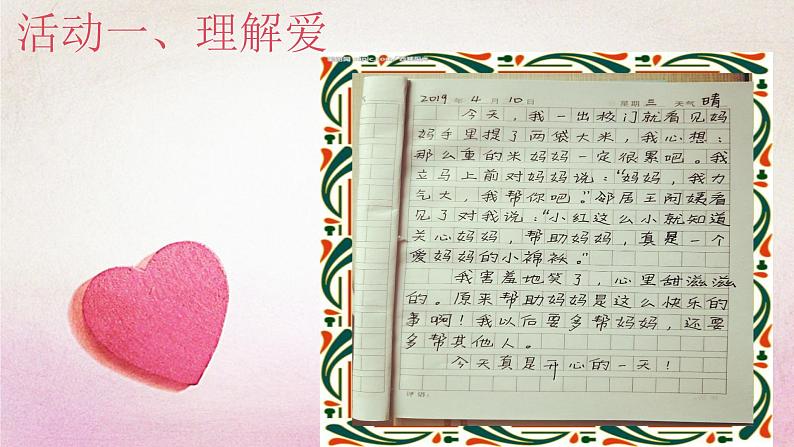 活动一、理解爱
2019年4月10日 星期三 天气晴
今天，我一出校门就看见妈
妈手里提了两袋大米，我心想：
那么重的米妈妈一定很累吧。我
立马上前对妈妈说：“妈妈，我力
气大，我帮你吧。”邻居王阿姨看
见了对我说：“小红这么小就知道
关心妈妈，帮助妈妈，真是一个
爱妈妈的小棉袄。”
我害羞地笑了，心里甜滋滋
的。原来帮助妈妈是这么快乐的
事啊！我以后要多帮妈妈，还要
多帮其他人。
今天真是开心的一天！
评语：